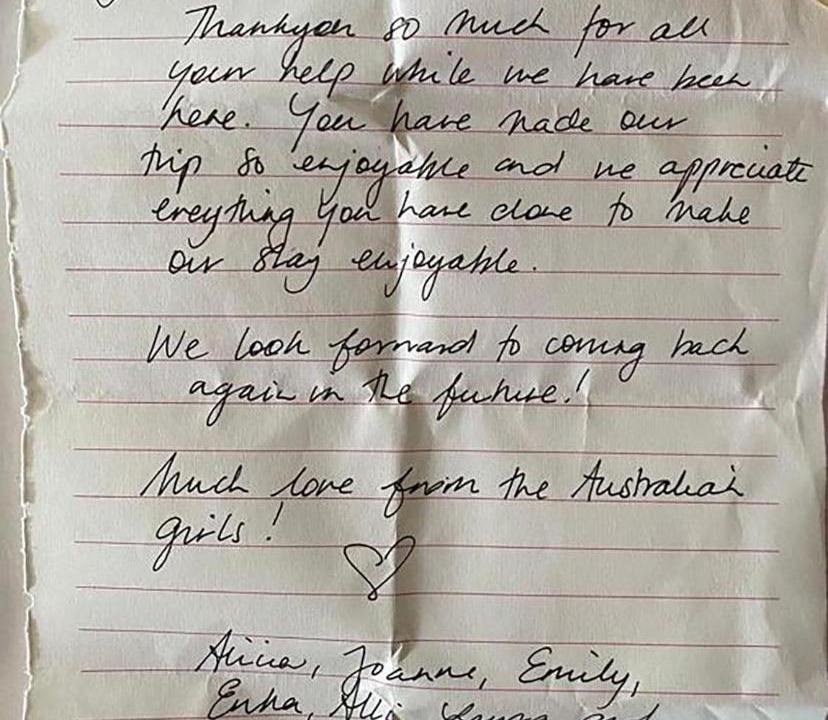 Thankyou so much for all
your help while we have been
here. You have made our
trip so enjoyable and we appreciate
ereything you have done to make
our stay enjoyable.
We look forward to coming back
again in the future!
Much love from the Australian
girls!
Alicia, Joanne, Emily,
Alli